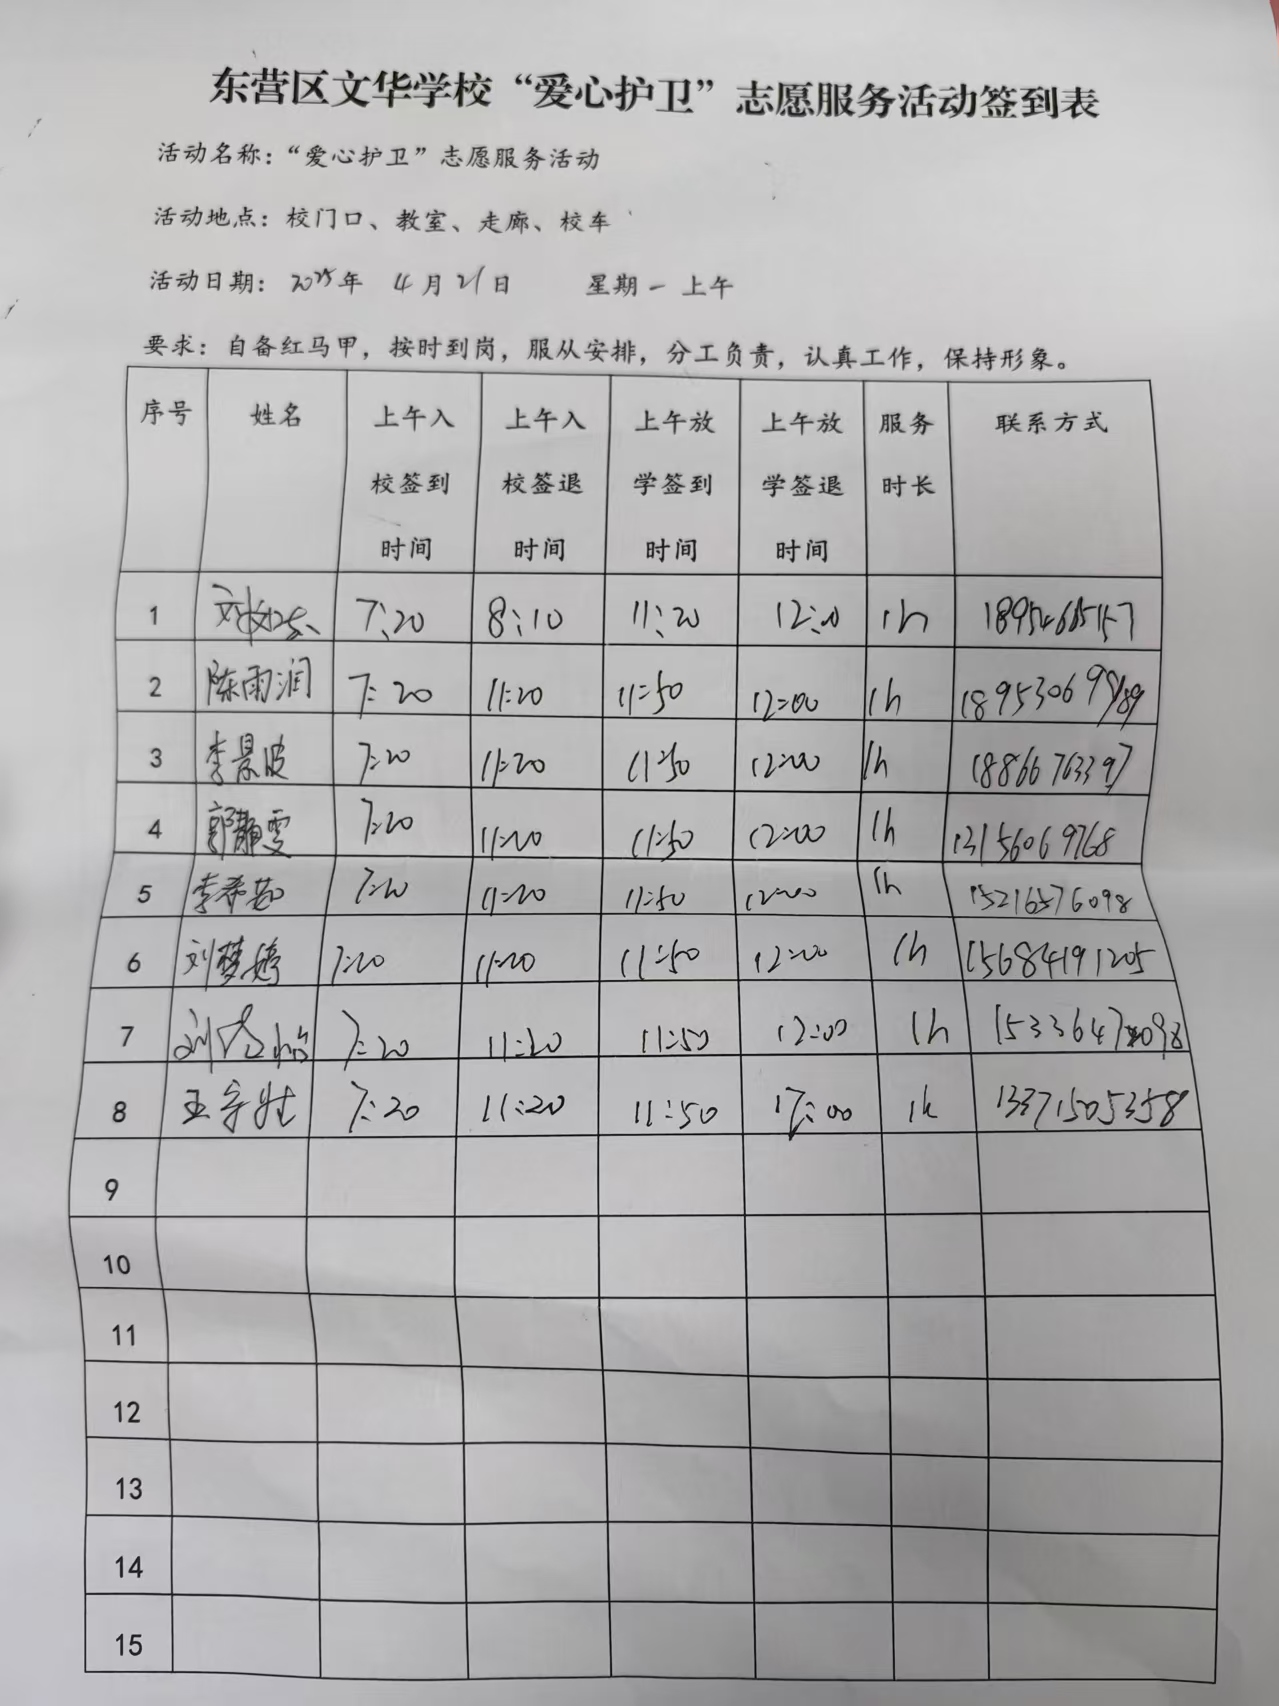 东营区文华学校“爱心护卫”志愿服务活动签到表
活动名称：“爱心护卫”志愿服务活动
活动地点：校门口、教室、走廊、校车
活动日期：2025年 4月21日 星期一 上午
要求：自备红马甲，按时到岗，服从安排，分工负责，认真工作，保持形象。
序号 姓名 上午入校签到时间 上午入校签退时间 上午放学签到时间 上午放学签退时间 服务时长 联系方式
1 7:20 8:10 11:20 12:00 1h
2 陈雨润 7:20 11:20 11:50 12:00 1h
3 李景波 7:20 11:20 11:50 12:00 1h 18866763397
4 郭静雯 7:20 11:20 11:50 12:00 1h 13156069768
5 7:20 11:20 11:50 12:00 1h 15216576098
6 刘梦婷 7:20 11:20 11:50 12:00 1h 15684191205
7 7:20 11:20 11:50 12:00 1h
8 7:20 11:20 11:50 17:00 1h 13371505358
9
10
11
12
13
14
15